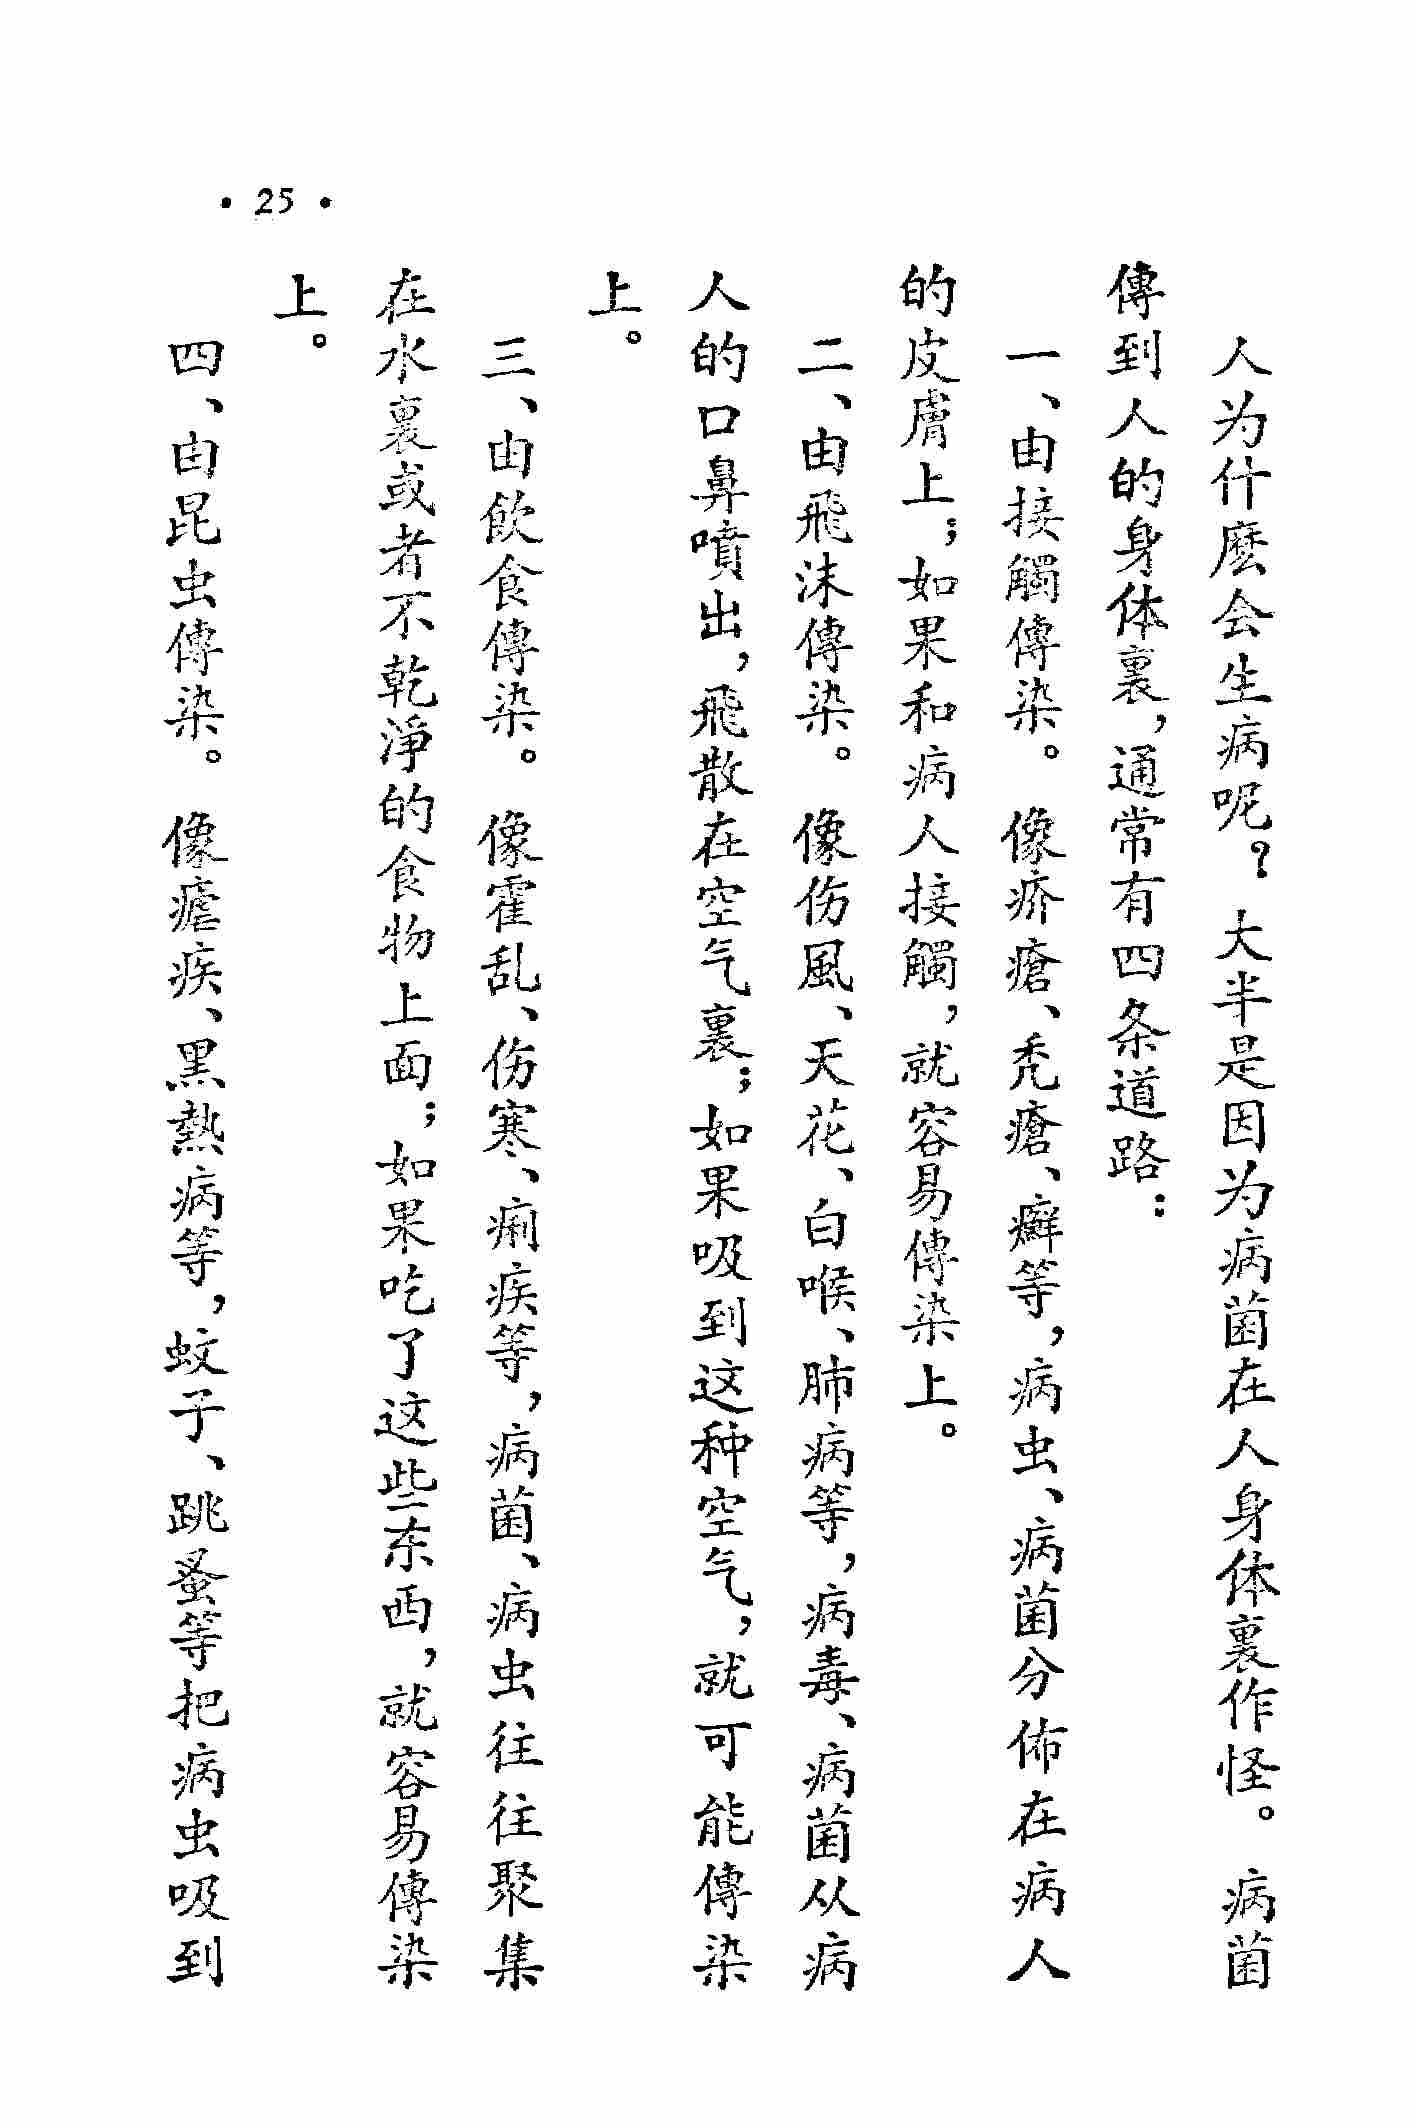 · 25 ·
人为什麽会生病呢？大半是因为病菌在人身体裏作怪。病菌
傳到人的身体裏，通常有四条道路：
一、由接觸傳染。像疥瘡、禿瘡、癬等，病虫、病菌分佈在病人
的皮膚上；如果和病人接觸，就容易傳染上。
二、由飛沫傳染。像伤風、天花、白喉、肺病等，病毒、病菌从病
人的口鼻噴出，飛散在空气裏；如果吸到这种空气，就可能傳染
上。
三、由飲食傳染。像霍乱、伤寒、痢疾等，病菌、病虫往往聚集
在水裏或者不乾淨的食物上面；如果吃了这些东西，就容易傳染
上。
四、由昆虫傳染。像瘧疾、黑熱病等，蚊子、跳蚤等把病虫吸到